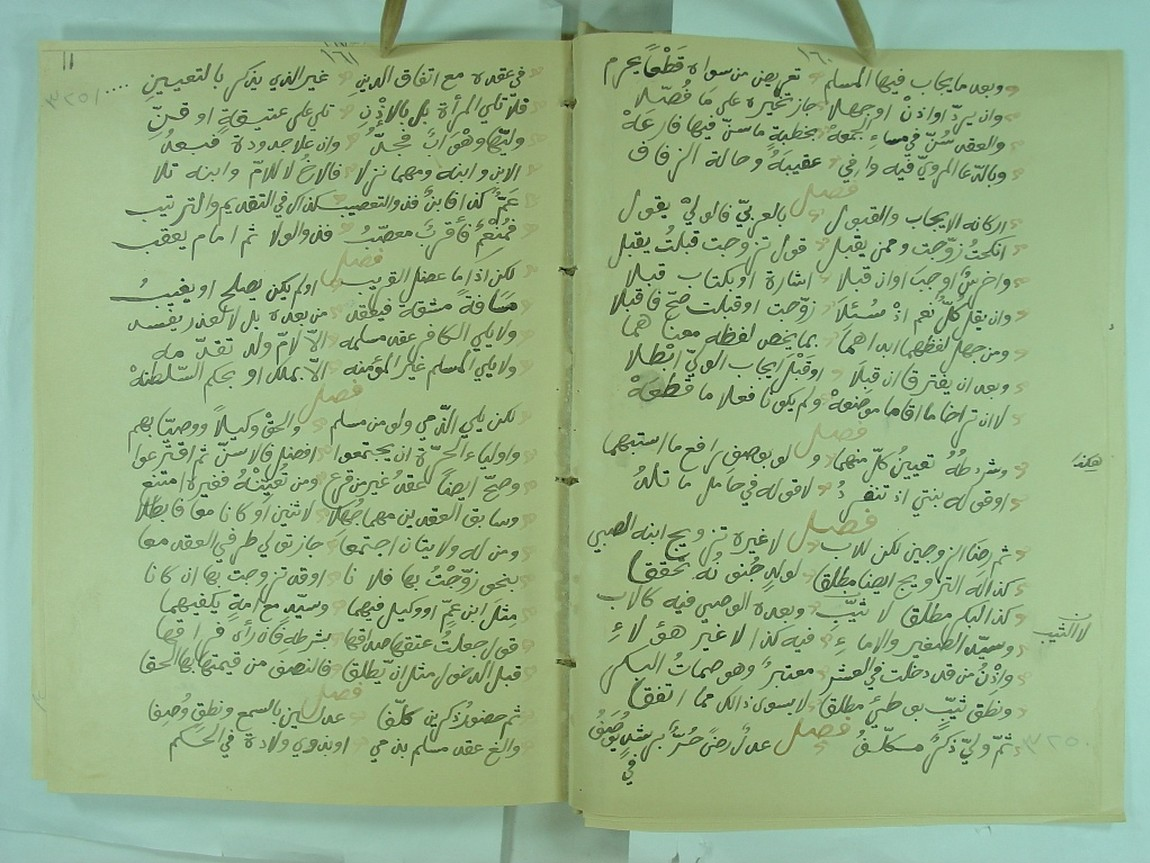 ١٦٠
وبعد ما يجاب فيها المسلم تعريض من سواه قطعًا يحرم
وان يردّ او اذنْ او جهلا جاز تخيره على مَا فُصّلا
والعقد سُنّ في مساءِ الجمعهْ بخطبةٍ ما سنّ فيها فارعهْ
وبالدّعا المرويّ فيه وا في عقيبهُ وحالة الزفاف
فصل
اركانه الايجاب والقبول بالعربيّ فالوليْ يقول
انكحتُ زوّجت وممن يقبل قول تزوجت قبلتُ يقبل
واخرسٌ اوجب اوان قبلا اشارة او بكتاب قبلا
وان يقل كلٌّ نعم اذْ سُئلَا زوّجت او قبلت صحّ فاقبلا
ومن جهل لفظهما اداهما بما يخص لفظه معناهما
وبعد ان يفترقا ان قبلا او قبْلَ ايجاب الوليّ ابْطلا
لا ان تراخا ما اقاما موضعهْ ولم يكونا فعلا ما قطعهْ
فصل
وشرطهُ تعيينُ كلّ منهما ولو بوصفٍ رافع ما استبهما
هكذا
او قوله بنتي اذ تنفردُ لا قوله في حامل ما تلدُ
فصل
ثم رضَا الزوجين لكن للاب لا غيره تزويج ابنه الصبي
كذا له التزويج ايضًا مطلقا لولدٍ جُنونُه تحققا
كذا البكر مطلقا لا ثيّبَ وبعده الوصي فيه كالاب
لا الثيب
وسيّد الصغير والاماءِ فيه كذا لا غير هؤلاءِ
واذْنُ من قد دخلت في العشر معتبرٌ وهو صماتُ البكر
ونطق ثيّب بوطئٍ مطلقا لا بسوى ذالك مما اتفقا
فصل
ثمّ وليّ ذكرٌ مكلّفُ عدلٌ رضىً حرٌّ برشدٍ يوصَفُ
في
١٦١
١١
في عقده مع اتفاق الدين غير الذي يذكر بالتعيينِ
فلا تلي المرأة بل بالاذْنِ تلي على عتيقةٍ او قنّ
وليّها وهْو ابٌ فجدُّ وان علا حدوده فبعدُ
الابن وابنه ومهما نزلا فالاخُ لا للامّ وابنه تلا
عَمٌّ كذا فابنٌ فذو التعصيب كذاك في التقديم والترتيب
فمُنْعِمٌ فأقربٌ معصّبُ فذو الولا ثم امام يعقب
فصل
لكن اذا ما عضل القريب او لم يكن يصلح او يغيبُ
مسافةً مشقة فيعقد من بعده بل لا لعذر يفسد
ولا يلي الكافر عقد مسلمه الّا لامّ ولد تقدّمه
ولا يلي المسلم غير المؤمنه الّا بملك او بحكم السّلطنهْ
فصل
لكن يلي الذّمي ولو من مسلم والحقْ وكيلًا ووصيًّا بهم
واولياء الحرّة ان يجتمعوا افضل فالاسنّ ثم اقترعوا
وصحّ ايضًا عقدُ غير من قرع ومن تُعيّنْهُ فغيره امتنع
وسابق العقدين مهما جُهلا لاثنين او كانا معًا فابطلا
ومن له ولايتان اجتمعا جاز تولي طرفي العقد معا
بنحو زوّجْتُ بها فلانا او قد تزوجت بها ان كانا
مثل ابن عمٍّ او وكيل فيهما وسيّد مع امةٍ يكفيهما
قول جعلتُ عتقها صداقها بشرطه فان رأى فراقها
قبل الدخول مثل ان يطلقا فالنصف من قيمتها بها الحقا
فصل
ثم حضور ذكرين كلّفا عدلين بالسمع ونطقٍ وُصفا
والغ عقد مسلم بذمي او بذوي ولادة في الحكم